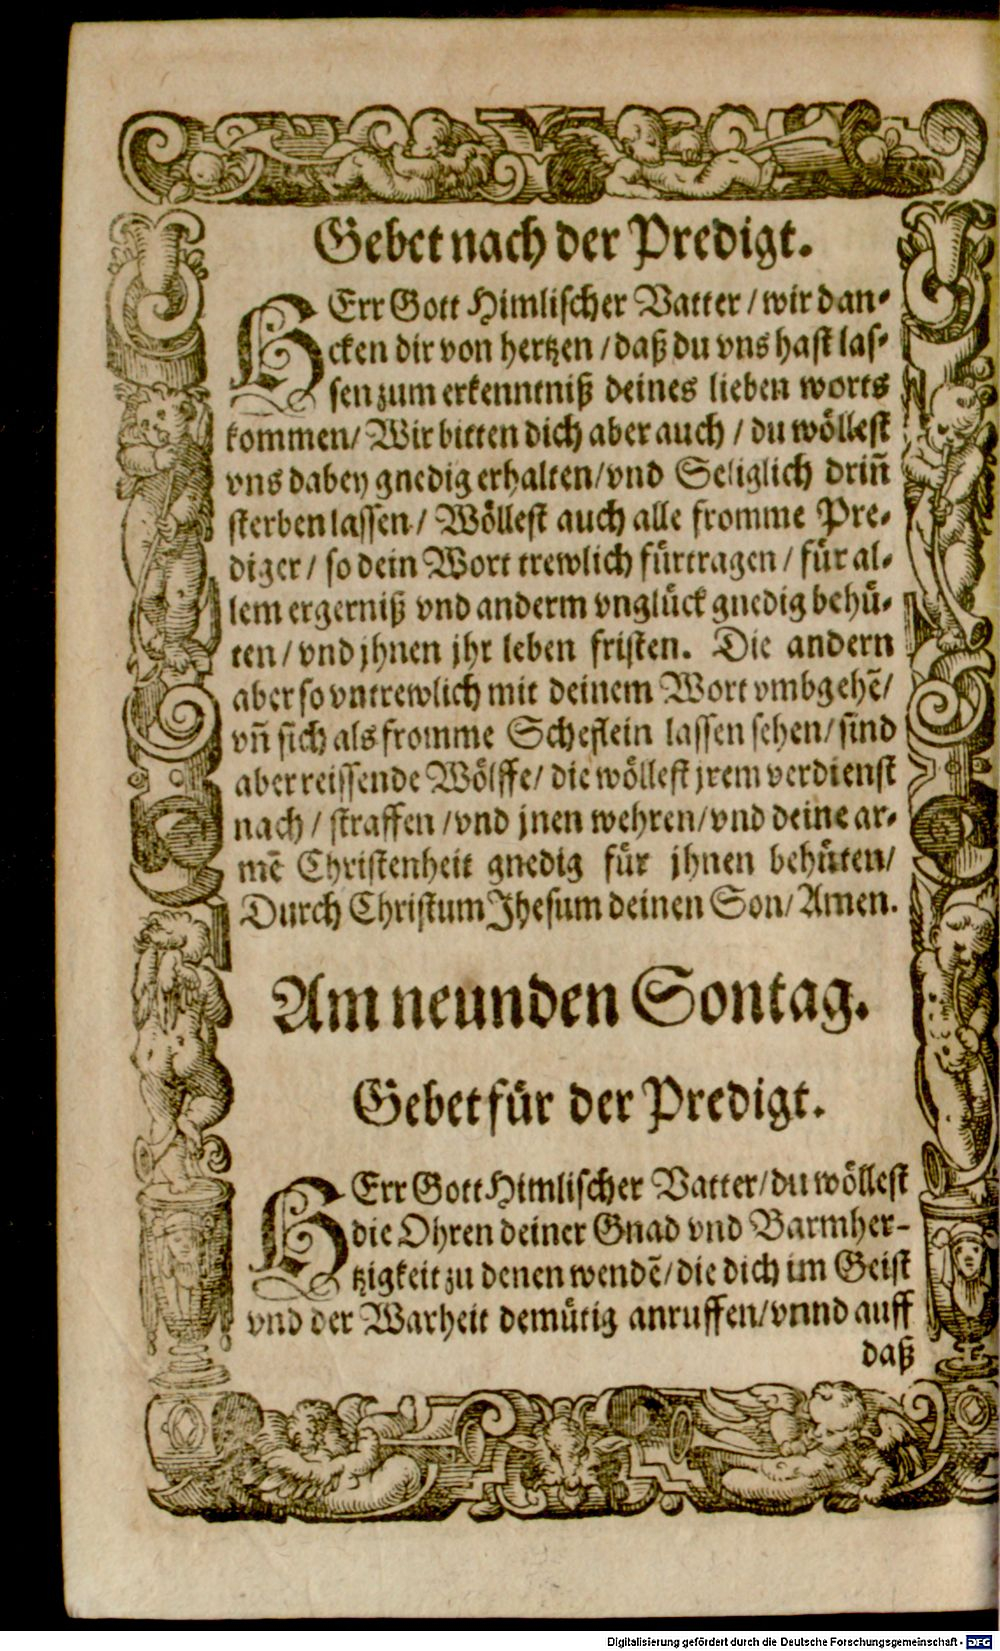 Gebet nach der Predigt.
HErr Gott Himlischer Vatter / wir dan-
cken dir von hertzen / daß du vns hast las-
sen zum erkenntniß deines lieben worts
kommen / Wir bitten dich aber auch / du wöllest
vns dabey gnedig erhalten / vnd Seliglich drin̄
sterben lassen / Wöllest auch alle fromme Pre-
diger / so dein Wort trewlich fürtragen / für al-
lem ergerniß vnd anderm vnglück gnedig behü-
ten / vnd jhnen jhr leben fristen. Die andern
aber so vntrewlich mit deinem Wort vmbgehē /
vn̄ sich als fromme Scheflein lassen sehen / sind
aber reissende Wölffe / die wöllest jrem verdienst
nach / straffen / vnd jnen wehren / vnd deine ar-
mē Christenheit gnedig für jhnen behüten /
Durch Christum Jhesum deinen Son / Amen.
Am neunden Sontag.
Gebet für der Predigt.
HErr Gott Himlischer Vatter / du wöllest
die Ohren deiner Gnad vnd Barmher-
tzigkeit zu denen wendē / die dich im Geist
vnd der Warheit demütig anruffen / vnnd auff
daß
Digitalisierung gefördert durch die Deutsche Forschungsgemeinschaft - DFG